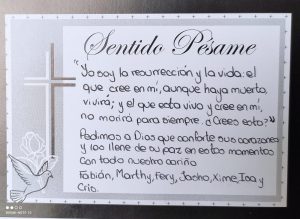 Sentido Pésame
"Yo soy la resurrección y la vida: el
que cree en mí, aunque haya muerto,
vivirá; y el que esta vivo y cree en mí,
no morirá para siempre. ¿Crees esto?"
Pedimos a Dios que conforte sus corazones
y los llene de su paz en estos momentos
Con todo nuestro cariño
Fabián, Marthy, Fery, Jacho, Xime, Isa y
Cris.